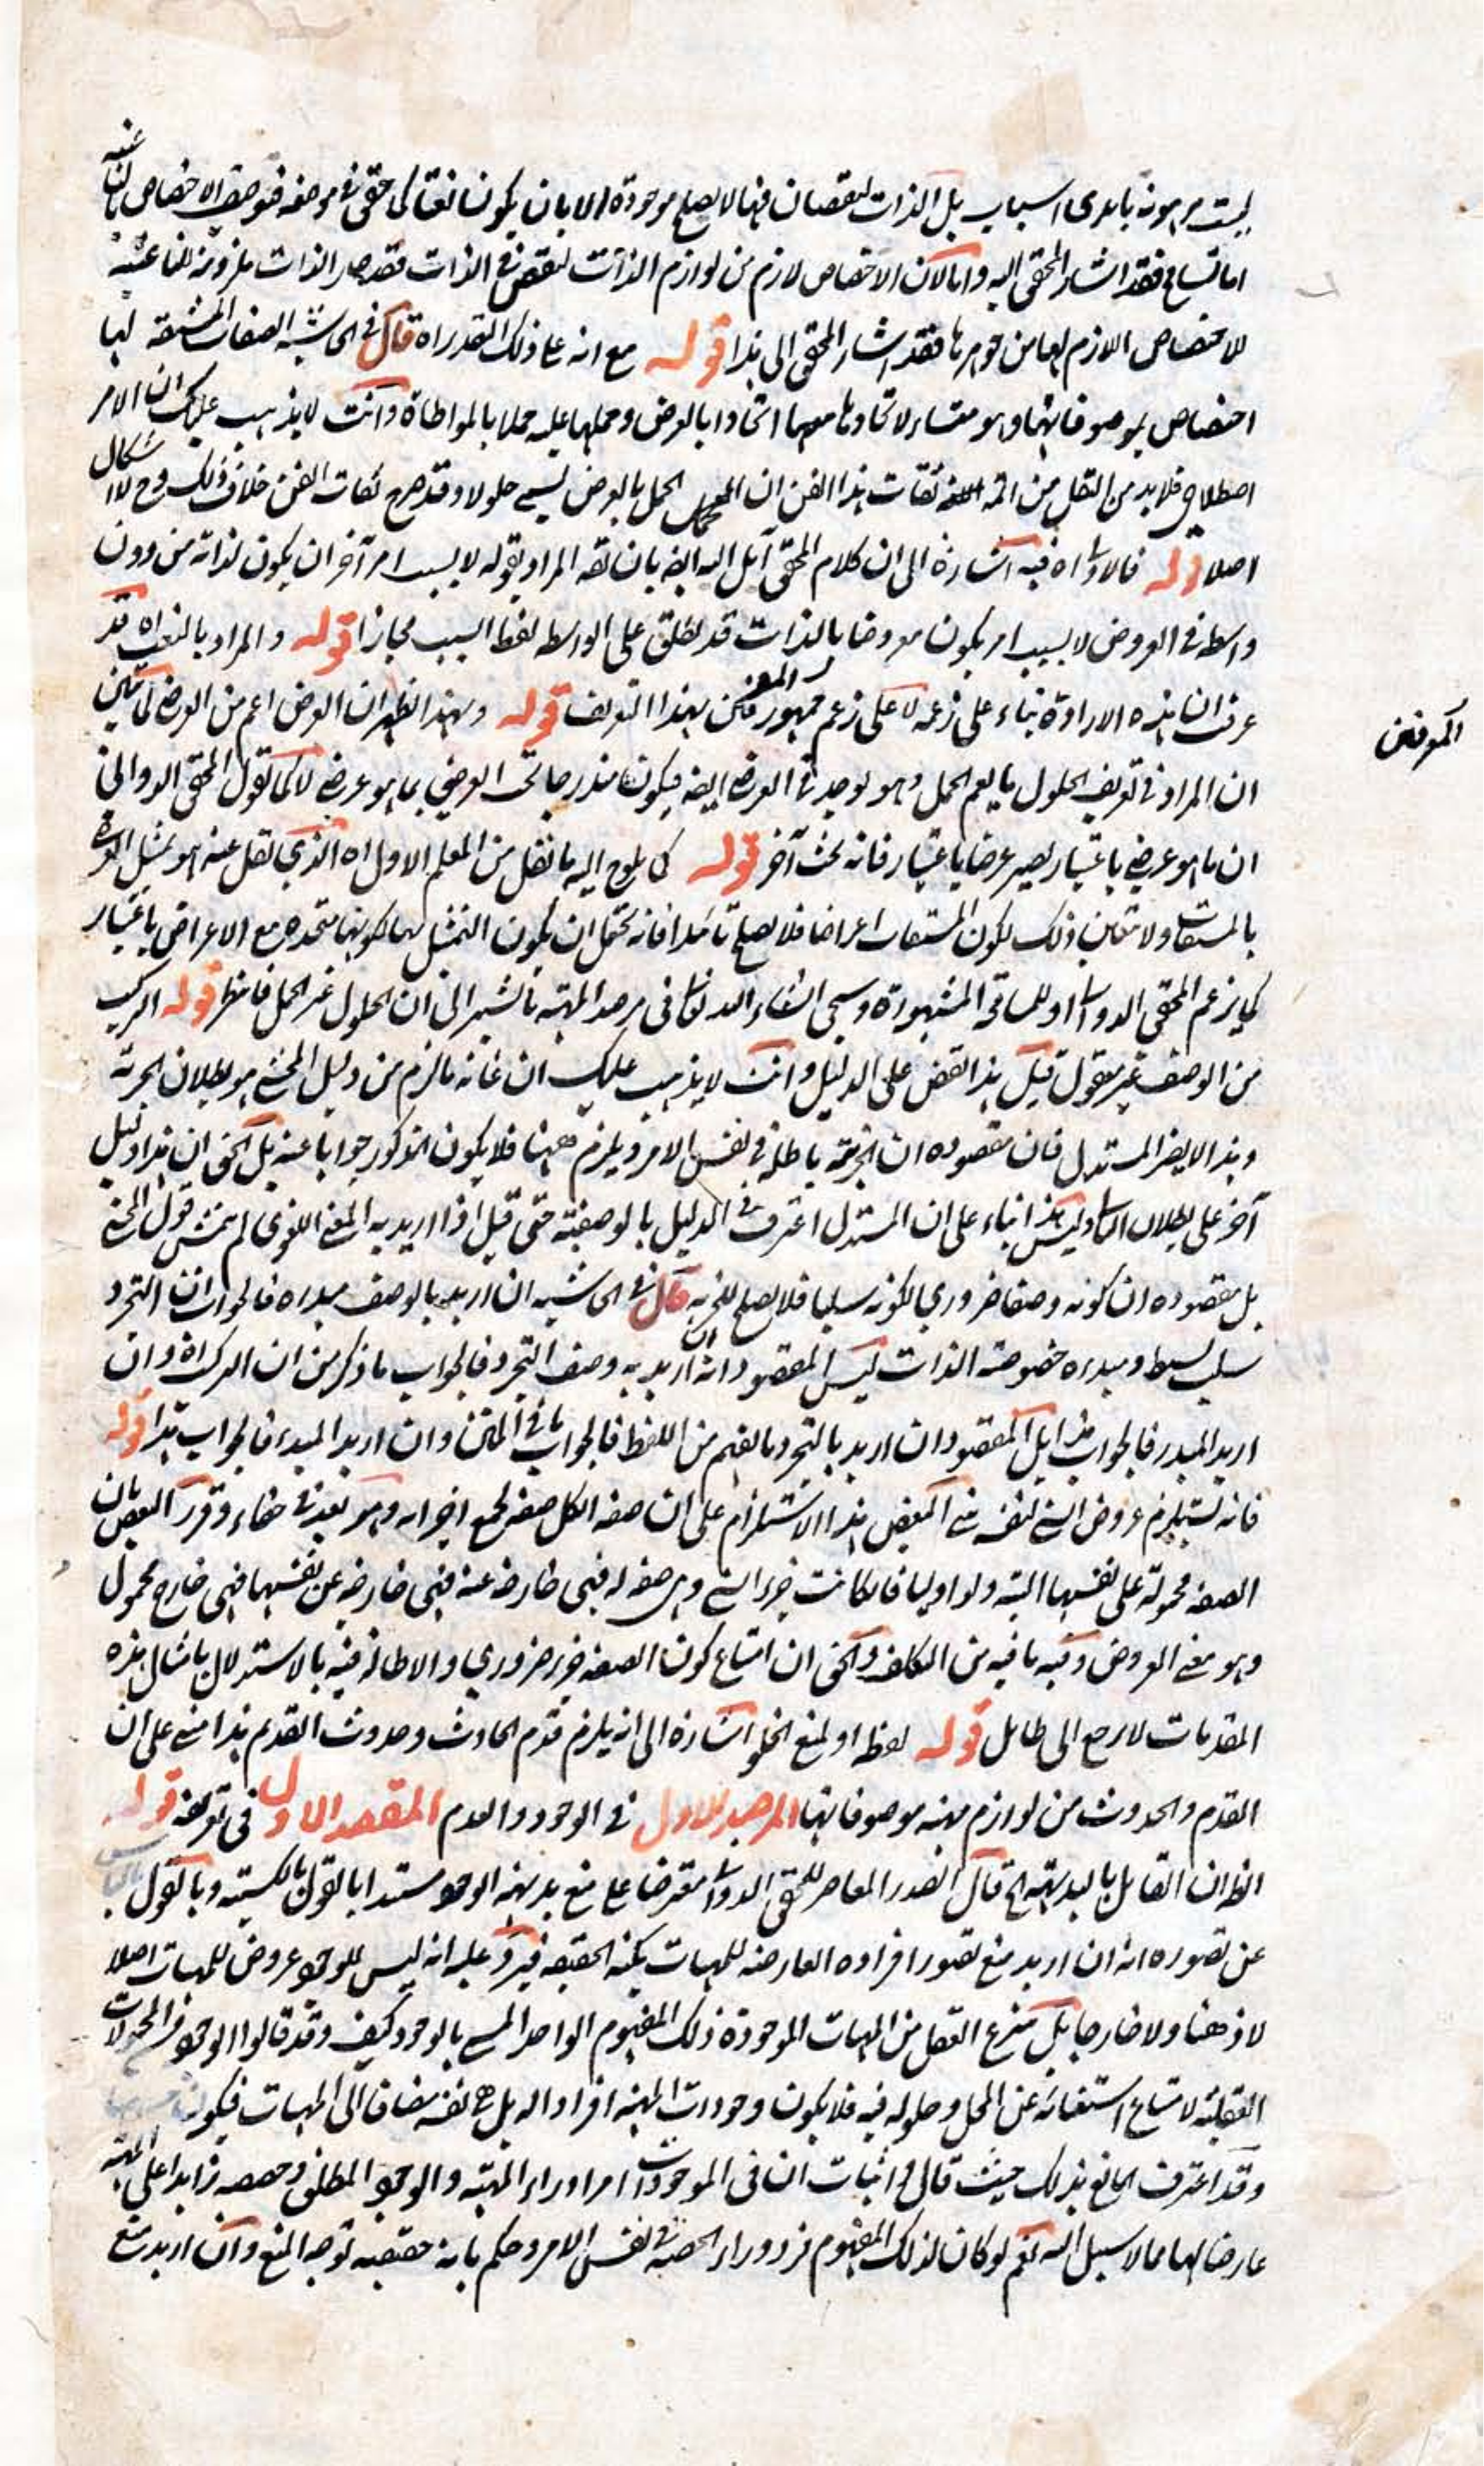 ليست مرهونة بايدى اسباب بل الذات لنقصان فيها لا يصلح موجودة الا بان يكون ناعتا لمحقق في موضعه الاختصاص
اما تسامح فقد اشار المحقق اليه واما لان الاختصاص لازم من لوازم الذات لنقص في الذات فقد صار الذات ملزومة للناعتية
للاختصاص اللازم لها من جوهرها فقد اشار المحقق الى هذا قوله مع انه على ذلك التقدير اه قال في الحاشية الصفات المشتقة لها
اختصاص بموصوفاتها وهو منشاء لاتحادها معها اتحادا بالعرض وحملها عليه حملا بالمواطاة وانت لا يذهب عليك ان الامر
اصطلاحي فلا بد من النقل من ائمة ثقات هذا الفن ان الحمل بالعرض يسمى حلولا وقد صرح ثقات الفن خلاف ذلك وح لا اشكال
اصلا قوله فالاولى اه فيه اشارة الى ان كلام المحقق آيل اليه ايضا بان يقال المراد بقوله لا بسبب امر آخر ان يكون لذاته من دون
واسطة في العروض لا بسبب امر يكون معروضا بالذات قد يطلق على الواسطة لفظ السبب مجازا قوله والمراد بالنعت اه قد
عرفت ان هذه الارادة بناء على زعمه لا على زعم جمهور المعرفين بهذا التعريف قوله وبهذا ظهر ان العرض اعم من العرضي
ان المراد في تعريف الحلول ما يعم الحمل وهو يوجد في العرضي ايضا فيكون مندرجا تحت العرض بما هو عرضي لا كما تقول المحقق الدواني
ان ما هو عرضي باعتبار يصير عرضا باعتبار فانه بحث آخر قوله كما يلوح اليه ما نقل من المعلم الاول اه الذي نقل عنه هو تمثيل العرض
بالمشتقات ولا يتعين ذلك لكون المشتقات اعراضا فلا يصلح تائيدا فانه يحتمل ان يكون التمثيل بها لكونها متحدة مع الاعراض باعتبار
كما يزعم المحقق الدواني او للمسامحة المشهورة وسيجئ انشاء الله تعالى في مرصد المهية ما يشير الى ان الحلول غير الحمل فانتظر قوله التركيب
من الوصف غير معقول قيل هذا نقض على الدليل وانت لا يذهب عليك ان غاية ما لزم من دليل المحشي هو بطلان الجزئية
وهذا لا يضر المستدل فان مقصوده ان الجزئية باطلة في نفس الامر ويلزم ههنا فلا يكون المذكور جوابا عنه بل الحق ان هذا دليل
آخر على بطلان التالي وليس هذا بناء على ان المستدل اعترف في الدليل بالوصفية حتى قيل اذا اريد به المعنى اللغوي لم يتمش قول المحشي
بل مقصوده ان كونه وصفا ضروري لكونه سلبا فلا يصلح للجزئية قال في الحاشية ان اريد بالوصف مبدءه فالجواب ان التجرد
سلب بسيط ومبدءه خصوصية الذات ليس المقصود انه ان اريد به وصف التجرد فالجواب ما ذكر من ان التركيب اه وان
اريد المبدء فالجواب هذا بل المقصود ان اريد بالتجرد ما يفهم من اللفظ فالجواب ما في المتن وان اريد المبدء فالجواب هذا قوله
فانه يستلزم عروض الشئ لنفسه بنى البعض هذا الاستلزام على ان صفة الكل صفة لجميع اجزائه وهو بعد في خفاء وقرر البعض بان
الصفة محمولة على نفسها البتة ولو اوليا فاذا كانت جزء الشئ وهي صفة له فهي خارجة عنه فهي خارجة عن نفسها فهي خارج محمول
وهو معنى العروض وفيه ما فيه من التكلف والحق ان امتناع كون الصفة جزء ضروري والاطالة فيه بالاستدلال بامثال هذه
المقدمات لا يرجع الى طائل قوله لفظ او لمنع الخلو اشارة الى انه يلزم قدم الحادث وحدوث القديم هذا مبنى على ان
القدم والحدوث من لوازم مهية موصوفاتها المرصد الاول في الوجود والعدم المقصد الاول في تعريفه قوله
الظ ان القائل بالبديهة اه قال الصدر المعاصر للمحقق الدواني معترضا على منع بديهة الوجود مستندا بالقول بالكسبية وبالقول بالياس
عن تصوره انه ان اريد منع تصور افراده العارضة للمهيات بكنه الحقيقة فيرد عليه انه ليس للوجود عروض للمهيات اصلا
لا ذهنا ولا خارجا بل ينتزع العقل من المهيات الموجودة ذلك المفهوم الواحد المسمى بالوجود كيف وقد قالوا الوجود من المحمولات
العقلية لامتناع استغنائه عن المحل وحلوله فيه فلا يكون وجودات المهية افراد اله بل هي نفسه مضافا الى المهيات فيكون
وقد اعترف المانع بذلك حيث قال في اثبات ان في الموجودات امرا وراء المهية والوجود المطلق وحصصه زايدا على المهية
عارضا لها مما لا سبيل اليه نعم لو كان لذلك المفهوم فرد وراء الحصة في نفس الامر وحكم بانه حقيقية توجه المنع وان اريد منع
المعرفين